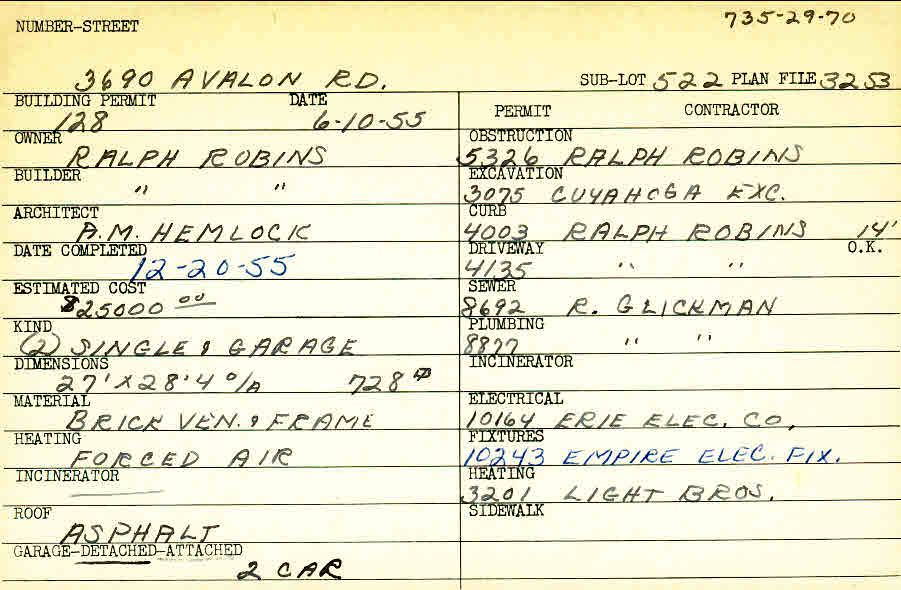 735-29-70
NUMBER-STREET
3690 AVALON RD. SUB-LOT 522 PLAN FILE 3253
BUILDING PERMIT DATE
128 6-10-55
OWNER
RALPH ROBINS
BUILDER
" "
ARCHITECT
A.M. HEMLOCK
DATE COMPLETED
12-20-55
ESTIMATED COST
$25000 00
KIND
(2) SINGLE & GARAGE
DIMENSIONS
27' X 28'4 O/A 728 ⌀
MATERIAL
BRICK VEN. & FRAME
HEATING
FORCED AIR
INCINERATOR
ROOF
ASPHALT
GARAGE-DETACHED-ATTACHED
2 CAR
PERMIT CONTRACTOR
OBSTRUCTION
5326 RALPH ROBINS
EXCAVATION
3075 CUYAHOGA EXC.
CURB
4003 RALPH ROBINS 14'
DRIVEWAY O.K.
4135 " "
SEWER
8692 R. GLICKMAN
PLUMBING
8877 " "
INCINERATOR
ELECTRICAL
10164 ERIE ELEC. CO.
FIXTURES
10243 EMPIRE ELEC. FIX.
HEATING
3201 LIGHT BROS.
SIDEWALK